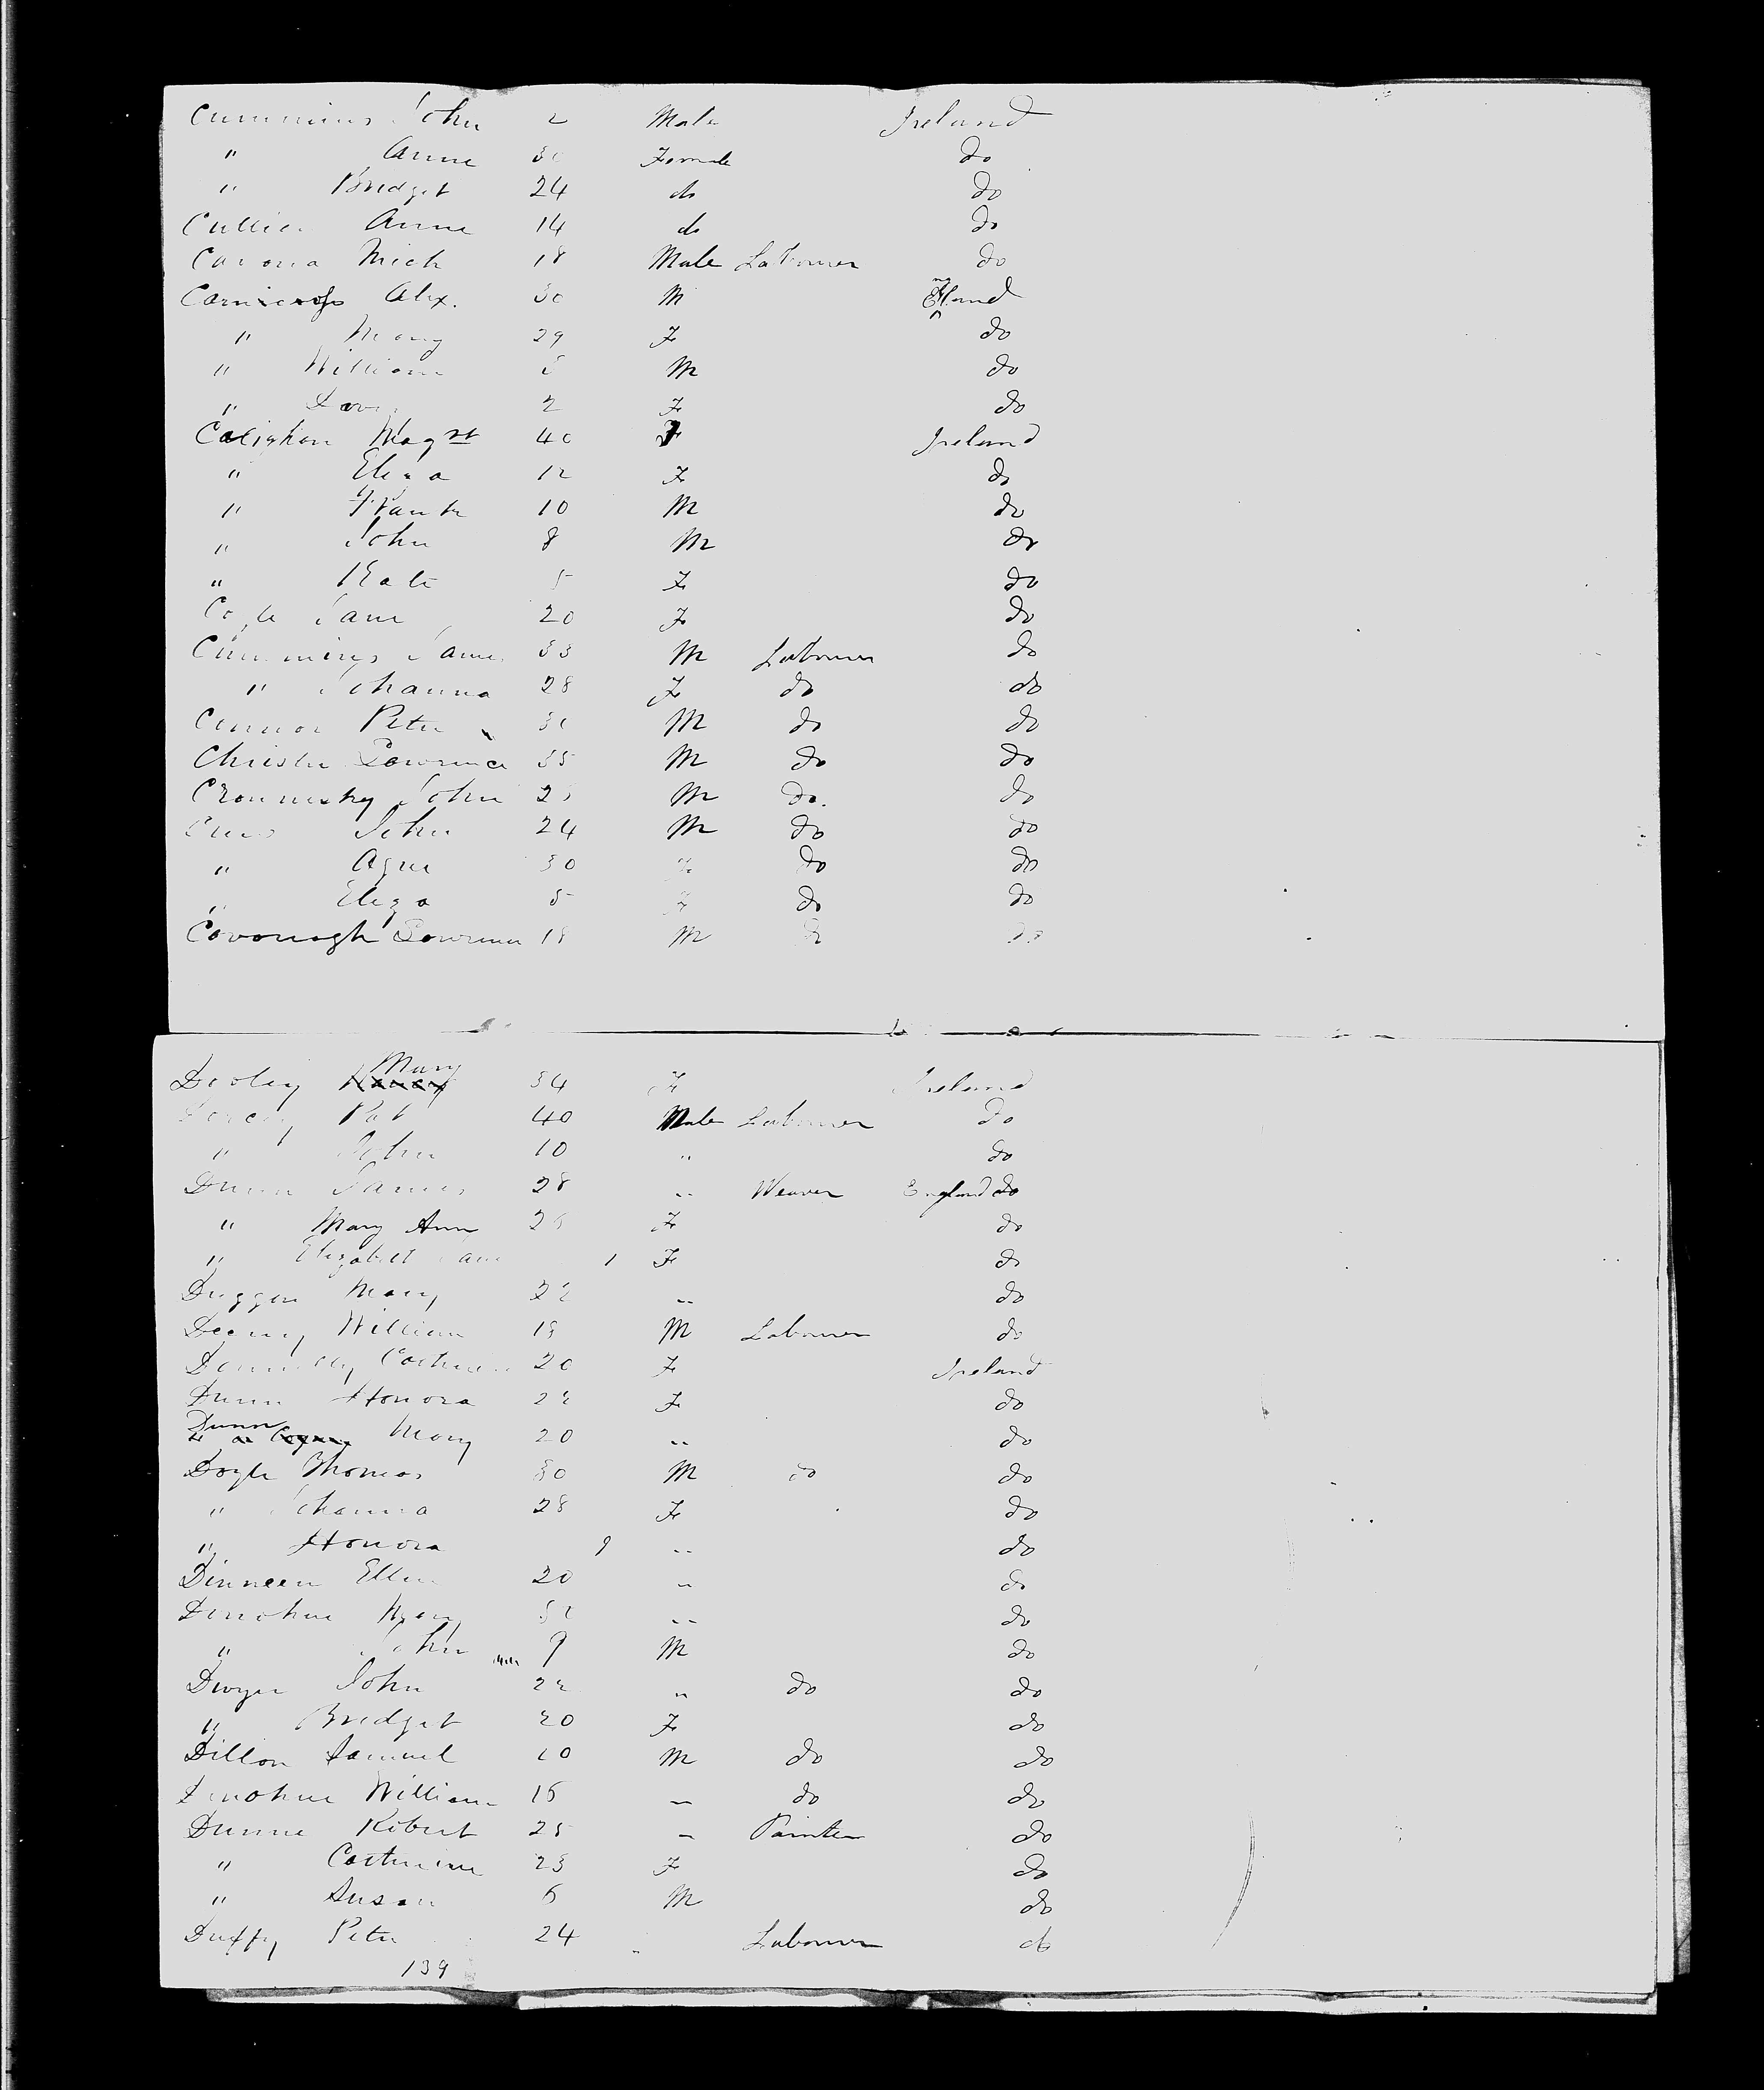 Cummins John 2 Male Ireland
" Anne 30 Female do
" Bridget 24 do do
Anne 14 do do
Mich 18 Male Labourer do
Carnicross Alex. 30 M England
" Mary 29 F do
" William M do
" 2 F do
Calighan Magrt 40 F Ireland
" Eliza 12 F do
" Frank 10 M do
" John 8 M do
" Kate 5 F do
Jane 20 F do
Cummings James 33 M Labourer do
" Johanna 28 F do do
Connor Peter M do do
Christie Lawrence 35 M do do
John M do. do
John 24 M do do
" Agnes 30 F do do
" Eliza 5 F do do
Cavanagh Lawrence 18 M do do
Dooley Mary 34 F Ireland
Pat 40 Male Labourer do
" John 10 " do
Dunn James 28 " Weaver England do
" Mary Ann F do
" Elizabeth Jane 1 F do
Duggan Mary 22 " do
William 18 M Labourer do
Donnelly Catherine 20 F Ireland
Dunn Honora 22 F do
Dunn Mary 20 " do
Doyle Thomas 30 M do do
" Johanna 28 F do
" Honora 9 " do
Dinneen Ellen 20 " do
Donohue Mary " do
" John 9 M do
Dwyer John 22 " do do
" Bridget 20 F do
Dillon Samuel 10 M do do
Donohue William 16 " do do
Dunne Robert 25 " Painter do
" Catherine 23 F do
" Susan 6 M do
Duffy Peter 24 " Labourer do
139